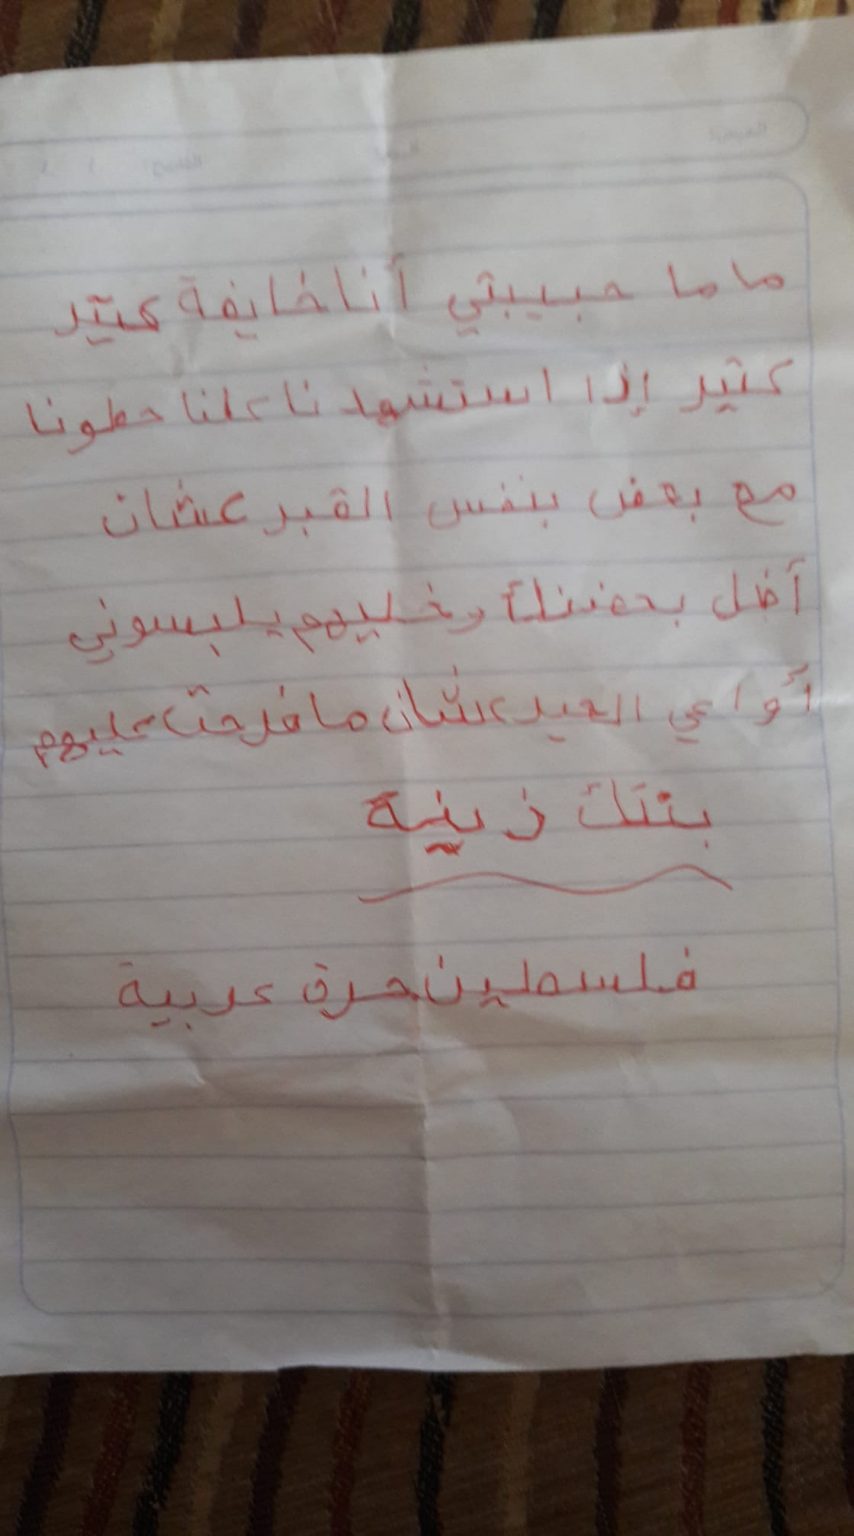 ماما حبيبتي أنا خايفة كتير
كتير إذا استشهدنا كلنا حطونا
مع بعض بنفس القبر عشان
أضل بحضنك وخليهم يلبسوني
أواعي العيد عشان ما فرحت عليهم
بنتك زينة
فلسطين حرة عربية